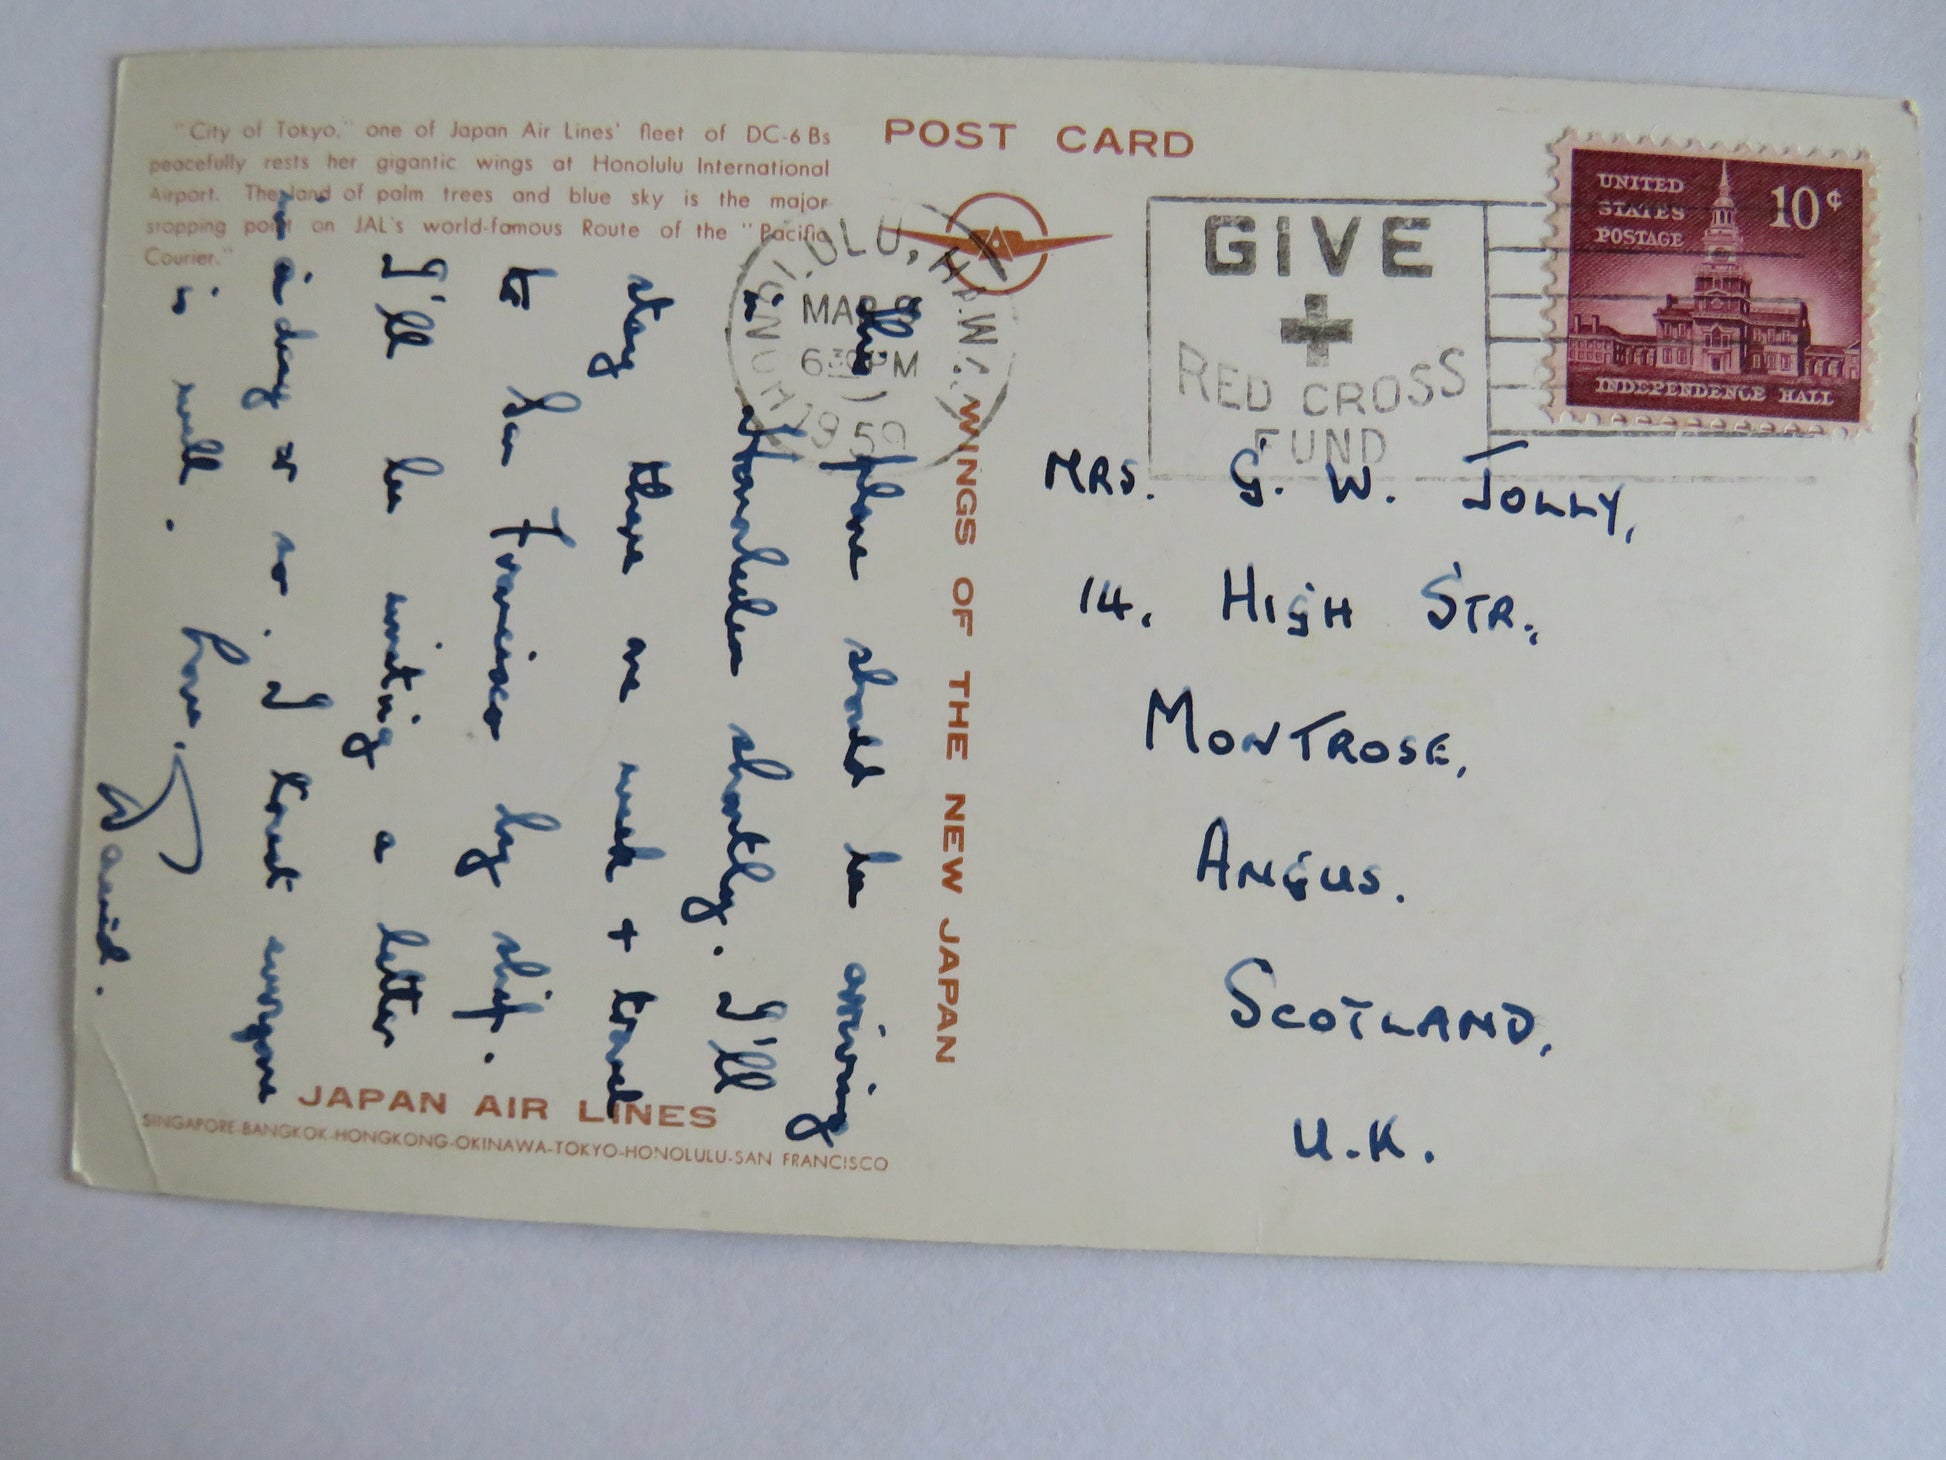 "City of Tokyo," one of Japan Air Lines' fleet of DC-6 Bs
peacefully rests her gigantic wings at Honolulu International
Airport. The land of palm trees and blue sky is the major
stopping point on JAL's world-famous Route of the "Pacific
Courier."
POST CARD
HONOLULU, HAWAII
MAR
6 30 PM
1959
GIVE
RED CROSS
FUND
UNITED
STATES
POSTAGE
10¢
INDEPENDENCE HALL
The plane should be arriving
in Honolulu shortly. I'll
stay there one week & travel
to San Francisco by ship.
I'll be writing a letter
in a day or so. I trust everyone
is well. Love,
David.
WINGS OF THE NEW JAPAN
MRS. G. W. JOLLY,
14, HIGH STR.,
MONTROSE,
ANGUS.
SCOTLAND,
U.K.
JAPAN AIR LINES
SINGAPORE-BANGKOK-HONGKONG-OKINAWA-TOKYO-HONOLULU-SAN FRANCISCO